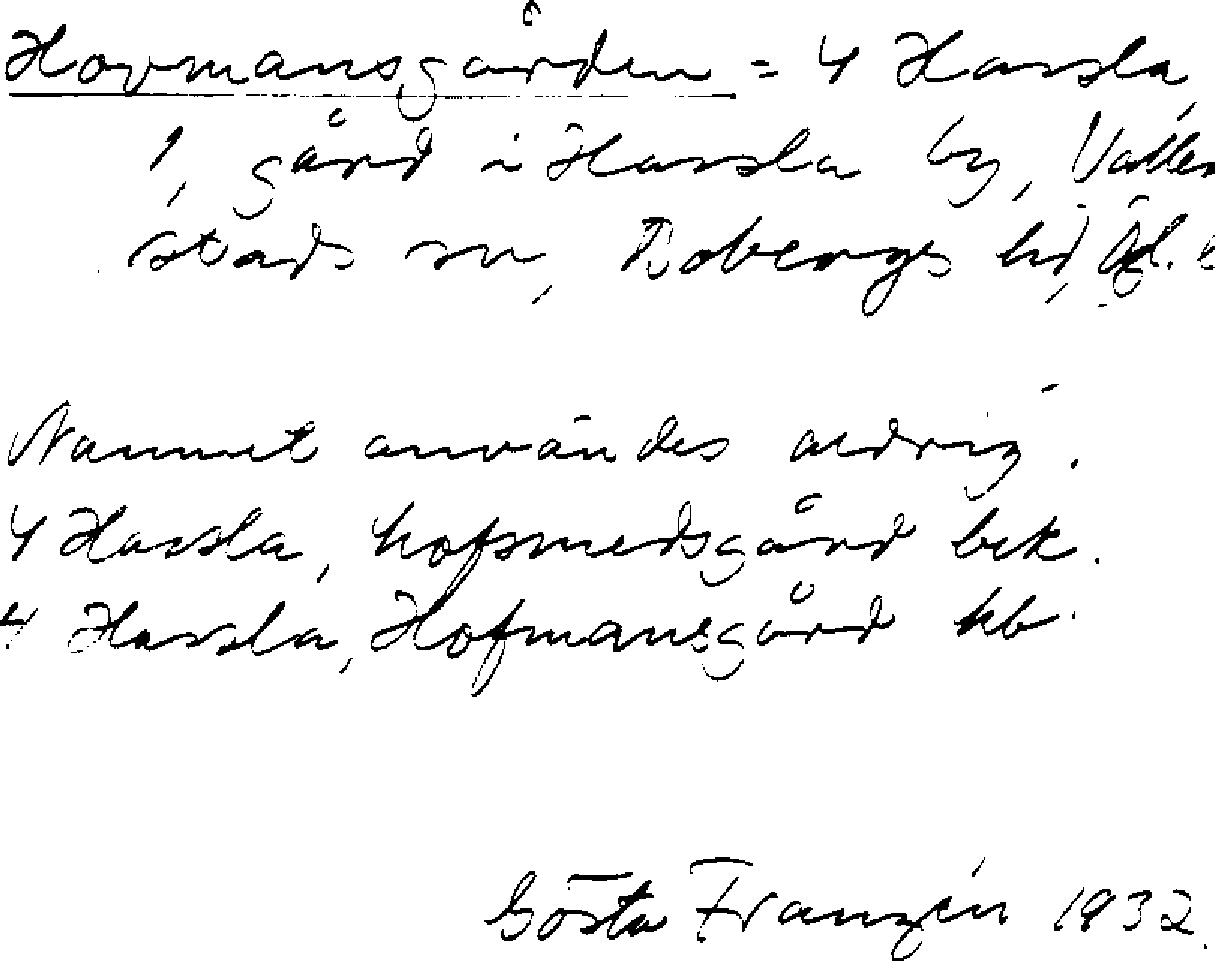 Hovmansgården = 4 Hassla,
1, gård i Hassla by, Valler-
stads sn, Bobergs hd, Ögl.
Namnet användes aldrig.
4 Hassla, hofsmedsgård bek.
4 Hassla, Hofmansgård kb.
Gösta Franzén 1932.